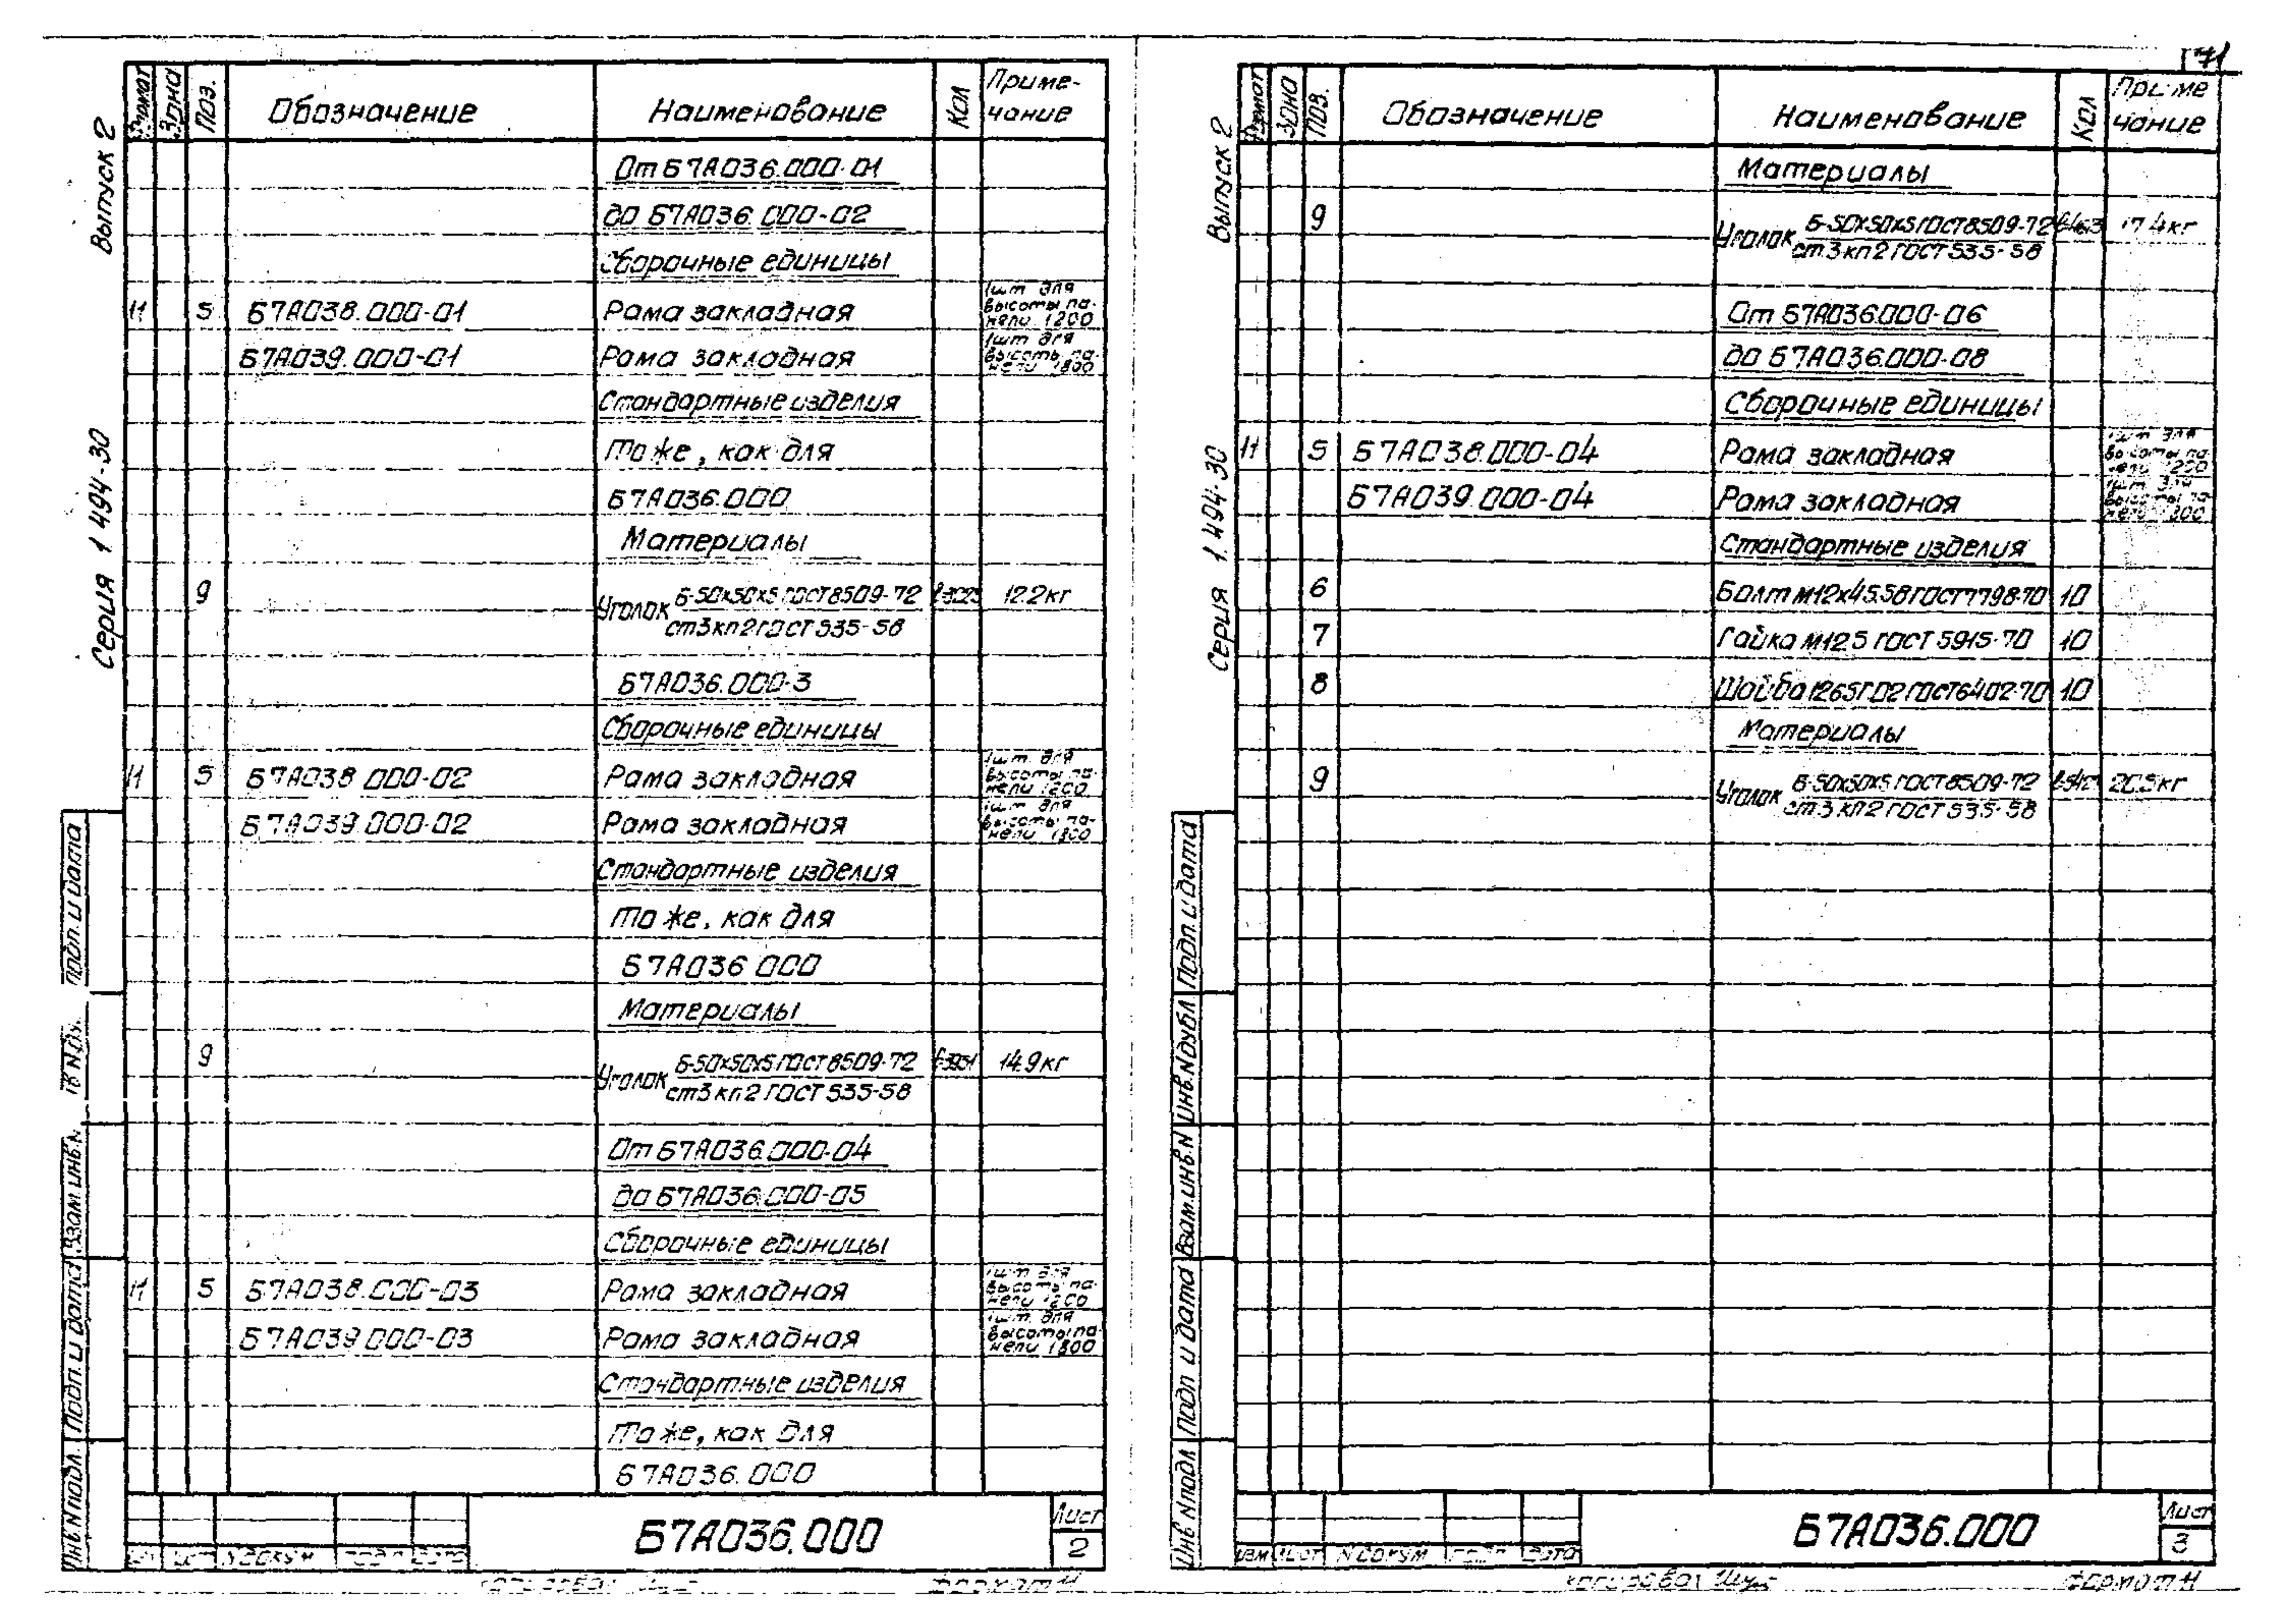 71
Выпуск 2
Серия 1 494-30
Формат Зона Поз. Обозначение Наименование Кол Приме-
чание
От Б7А036.000-01
до Б7А036.000-02
Сборочные единицы
11 5 Б7А038.000-01 Рама закладная 1шт для
высоты па-
нели 1200
Б7А039.000-01 Рама закладная 1шт для
высоты па-
нели 1800
Стандартные изделия
То же, как для
Б7А036.000
Материалы
9 Уголок Б-50х50х5 ГОСТ 8509-72 12.2кг
ст3кп2 ГОСТ 535-58
Б7А036.000-3
Сборочные единицы
11 5 Б7А038 000-02 Рама закладная 1шт для
высоты па-
нели 1200
Б7А039.000-02 Рама закладная 1шт для
высоты па-
нели 1800
Стандартные изделия
То же, как для
Б7А036 000
Материалы
9 Уголок Б-50х50х5 ГОСТ 8509-72 ℓ-3951 14.9кг
ст3кп2 ГОСТ 535-58
От Б7А036.000-04
до Б7А036.000-05
Сборочные единицы
11 5 Б7А038.000-03 Рама закладная 1шт для
высоты па-
нели 1200
Б7А039 000-03 Рама закладная 1шт для
высоты па-
нели 1800
Стандартные изделия
То же, как для
Б7А036.000
Подп. и дата
Взам. инв. N
Подп. и дата
Инв. N подл.
N докум подп дата
Б7А036.000
Лист
2
Формат 11
Выпуск 2
Серия 1.494-30
Формат Зона Поз. Обозначение Наименование Кол Приме
чание
Материалы
9 Уголок Б-50х50х5 ГОСТ 8509-72 17.4кг
ст3кп2 ГОСТ 535-58
От Б7А036.000-06
до Б7А036.000-08
Сборочные единицы
11 5 Б7А038.000-04 Рама закладная 1шт для
высоты па-
нели 1200
Б7А039.000-04 Рама закладная 1шт для
высоты па-
нели 1800
Стандартные изделия
6 Болт М12х45.58 ГОСТ 7798-70 10
7 Гайка М12.5 ГОСТ 5915-70 10
8 Шайба 12 65Г 02 ГОСТ 6402-70 10
Материалы
9 Уголок Б-50х50х5 ГОСТ 8509-72 20.5кг
ст3кп2 ГОСТ 535-58
Подп. и дата
Инв. N дубл.
Взам. инв. N
Подп и дата
Инв N подл
Изм Лист N докум подп дата
Б7А036.000
Лист
3
Копировал
Формат 11